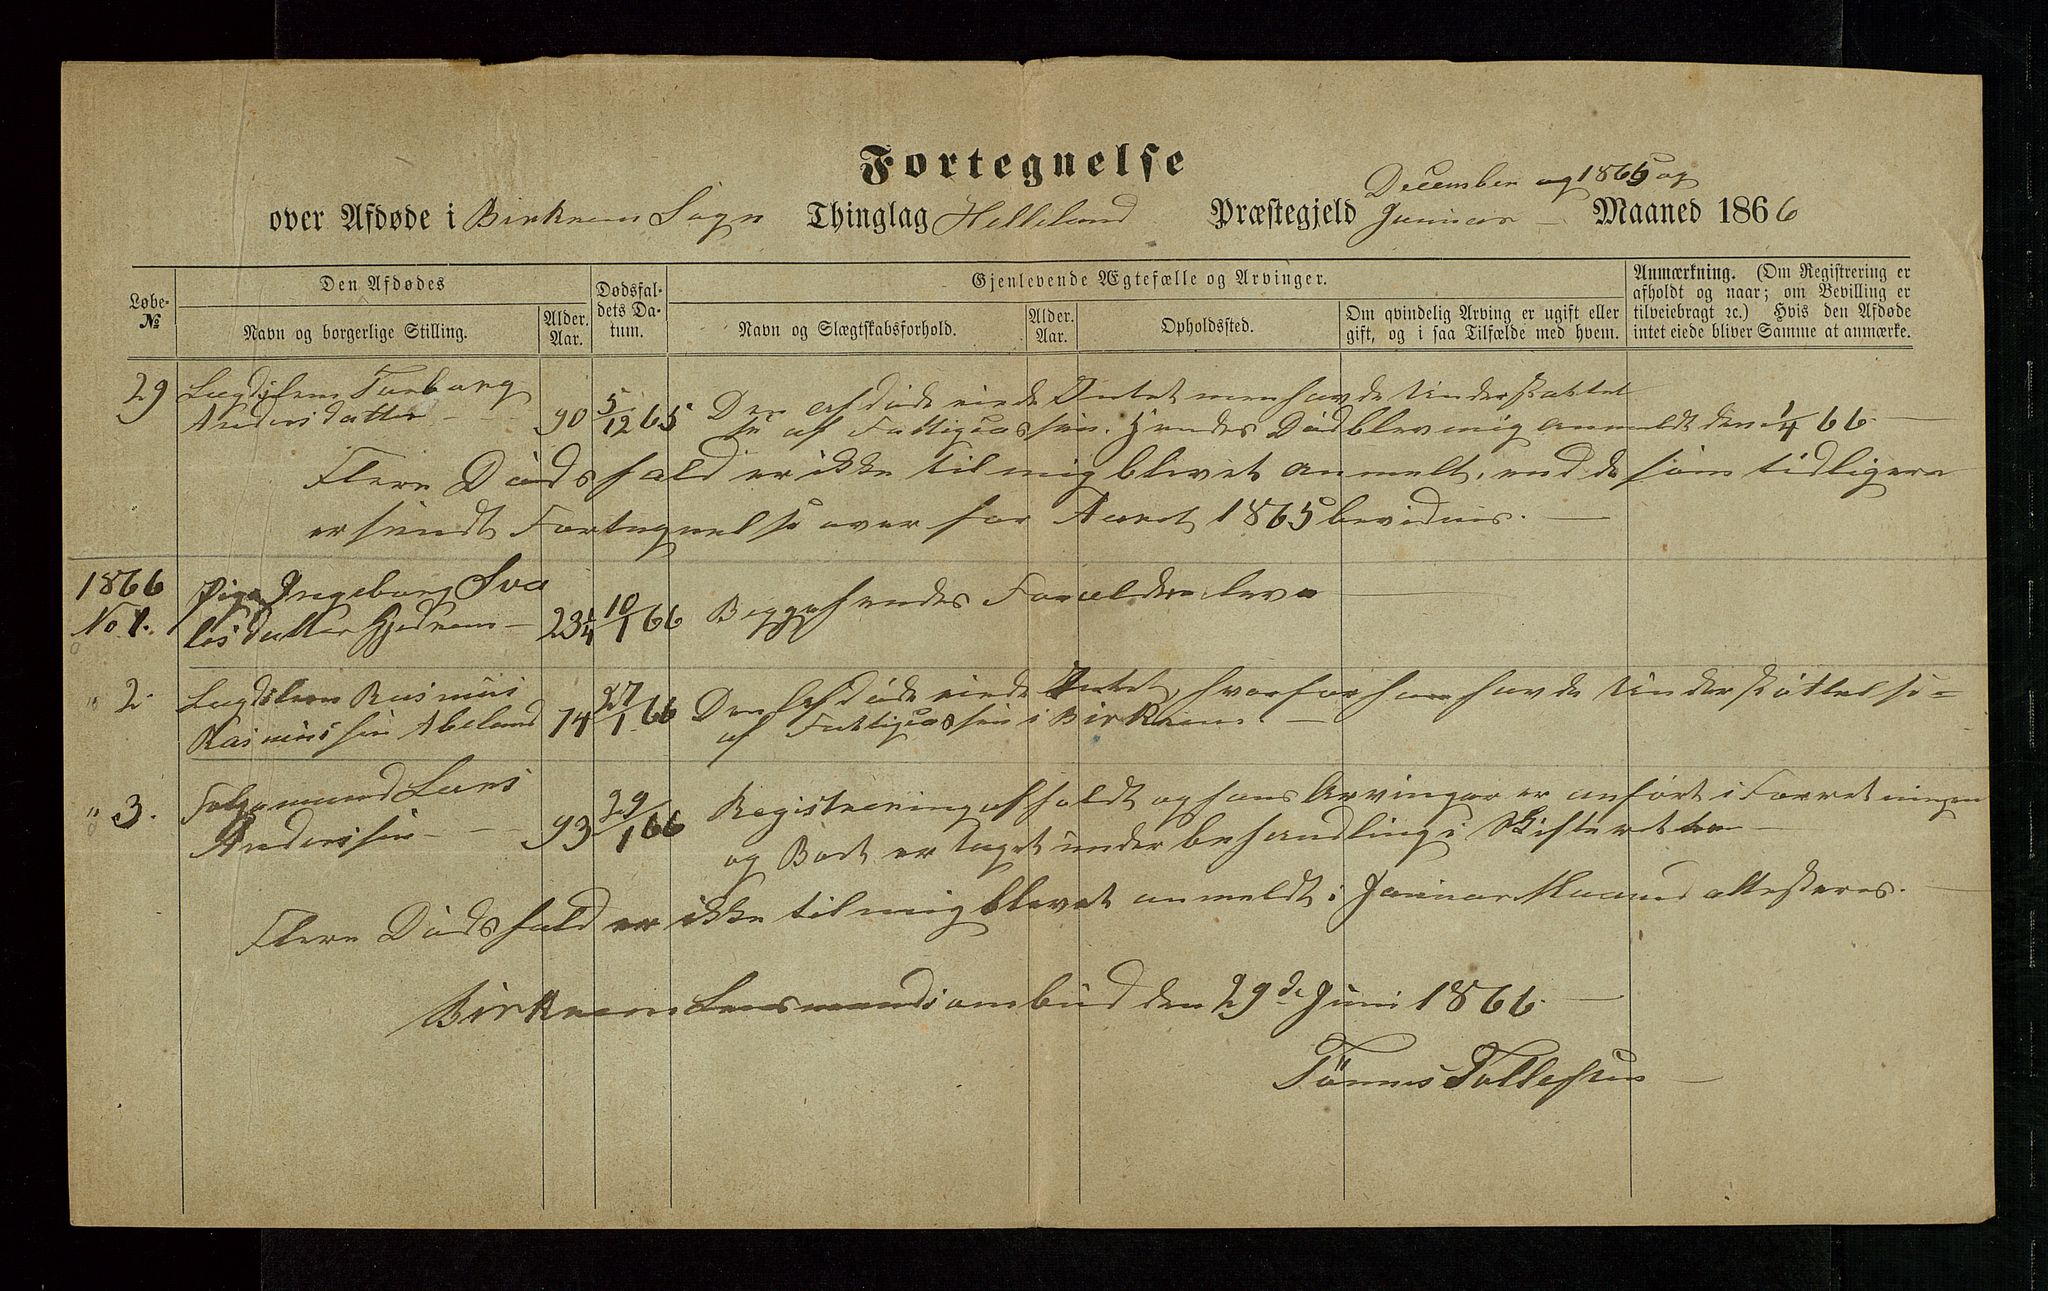 Fortegnelse
December og 1865 og
over Afdøde i Birkrem Sogn Thinglag Helleland Præstegjeld Januar — Maaned 1866
Løbe-
№
Den Afdødes
Navn og borgerlige Stilling.
Alder.
Aar.
Dødsfal-
dets Da-
tum.
Gjenlevende Ægtefælle og Arvinger.
Navn og Slægtskabsforhold.
Alder.
Aar.
Opholdssted.
Om qvindelig Arving er ugift eller
gift, og i saa Tilfælde med hvem.
Anmærkning. (Om Registrering er
afholdt og naar; om Bevilling er
tilveiebragt ꝛc.) Hvis den Afdøde
intet eiede bliver Samme at anmærke.
29 Lægdslem Torborg
Andersdatter — 90 5/12 65 Den afdøde eiede Intet men havde Understøttel
se af Fattigcassen. Hendes Død blev mig anmeldt den 1/4 66 —
Flere Dødsfald er ikke til mig blevet anmelt, end de som tidligere
er sendt Fortegnelse over for Aaret 1865 bevidnes. —
1866
No 1. Pige Ingeborg Sva
lesdatter Gjedrem — 23 1/4 10/1 66 Begge hendes Forældre leve —
" 2. Lægdslem Rasmus
Rasmussen Abeland 74 27/1 66 Den Afdøde eiede Intet, hvorfor han havde Understøttelse =
af Fattigcassen i Birkrem —
" 3. Folgemand Lars
Anderssen — — 93 29/1 66 Registrering afholdt og hans Arvinger er anført i Forretningen
og Boet er taget under behandling i Skifteretten —
Flere Dødsfald er ikke til mig blevet anmeldt i Januar Maaned attesteres. —
Birkrem Lensmandsombud den 29de Juni 1866. —
Tønnes Tollefsen —